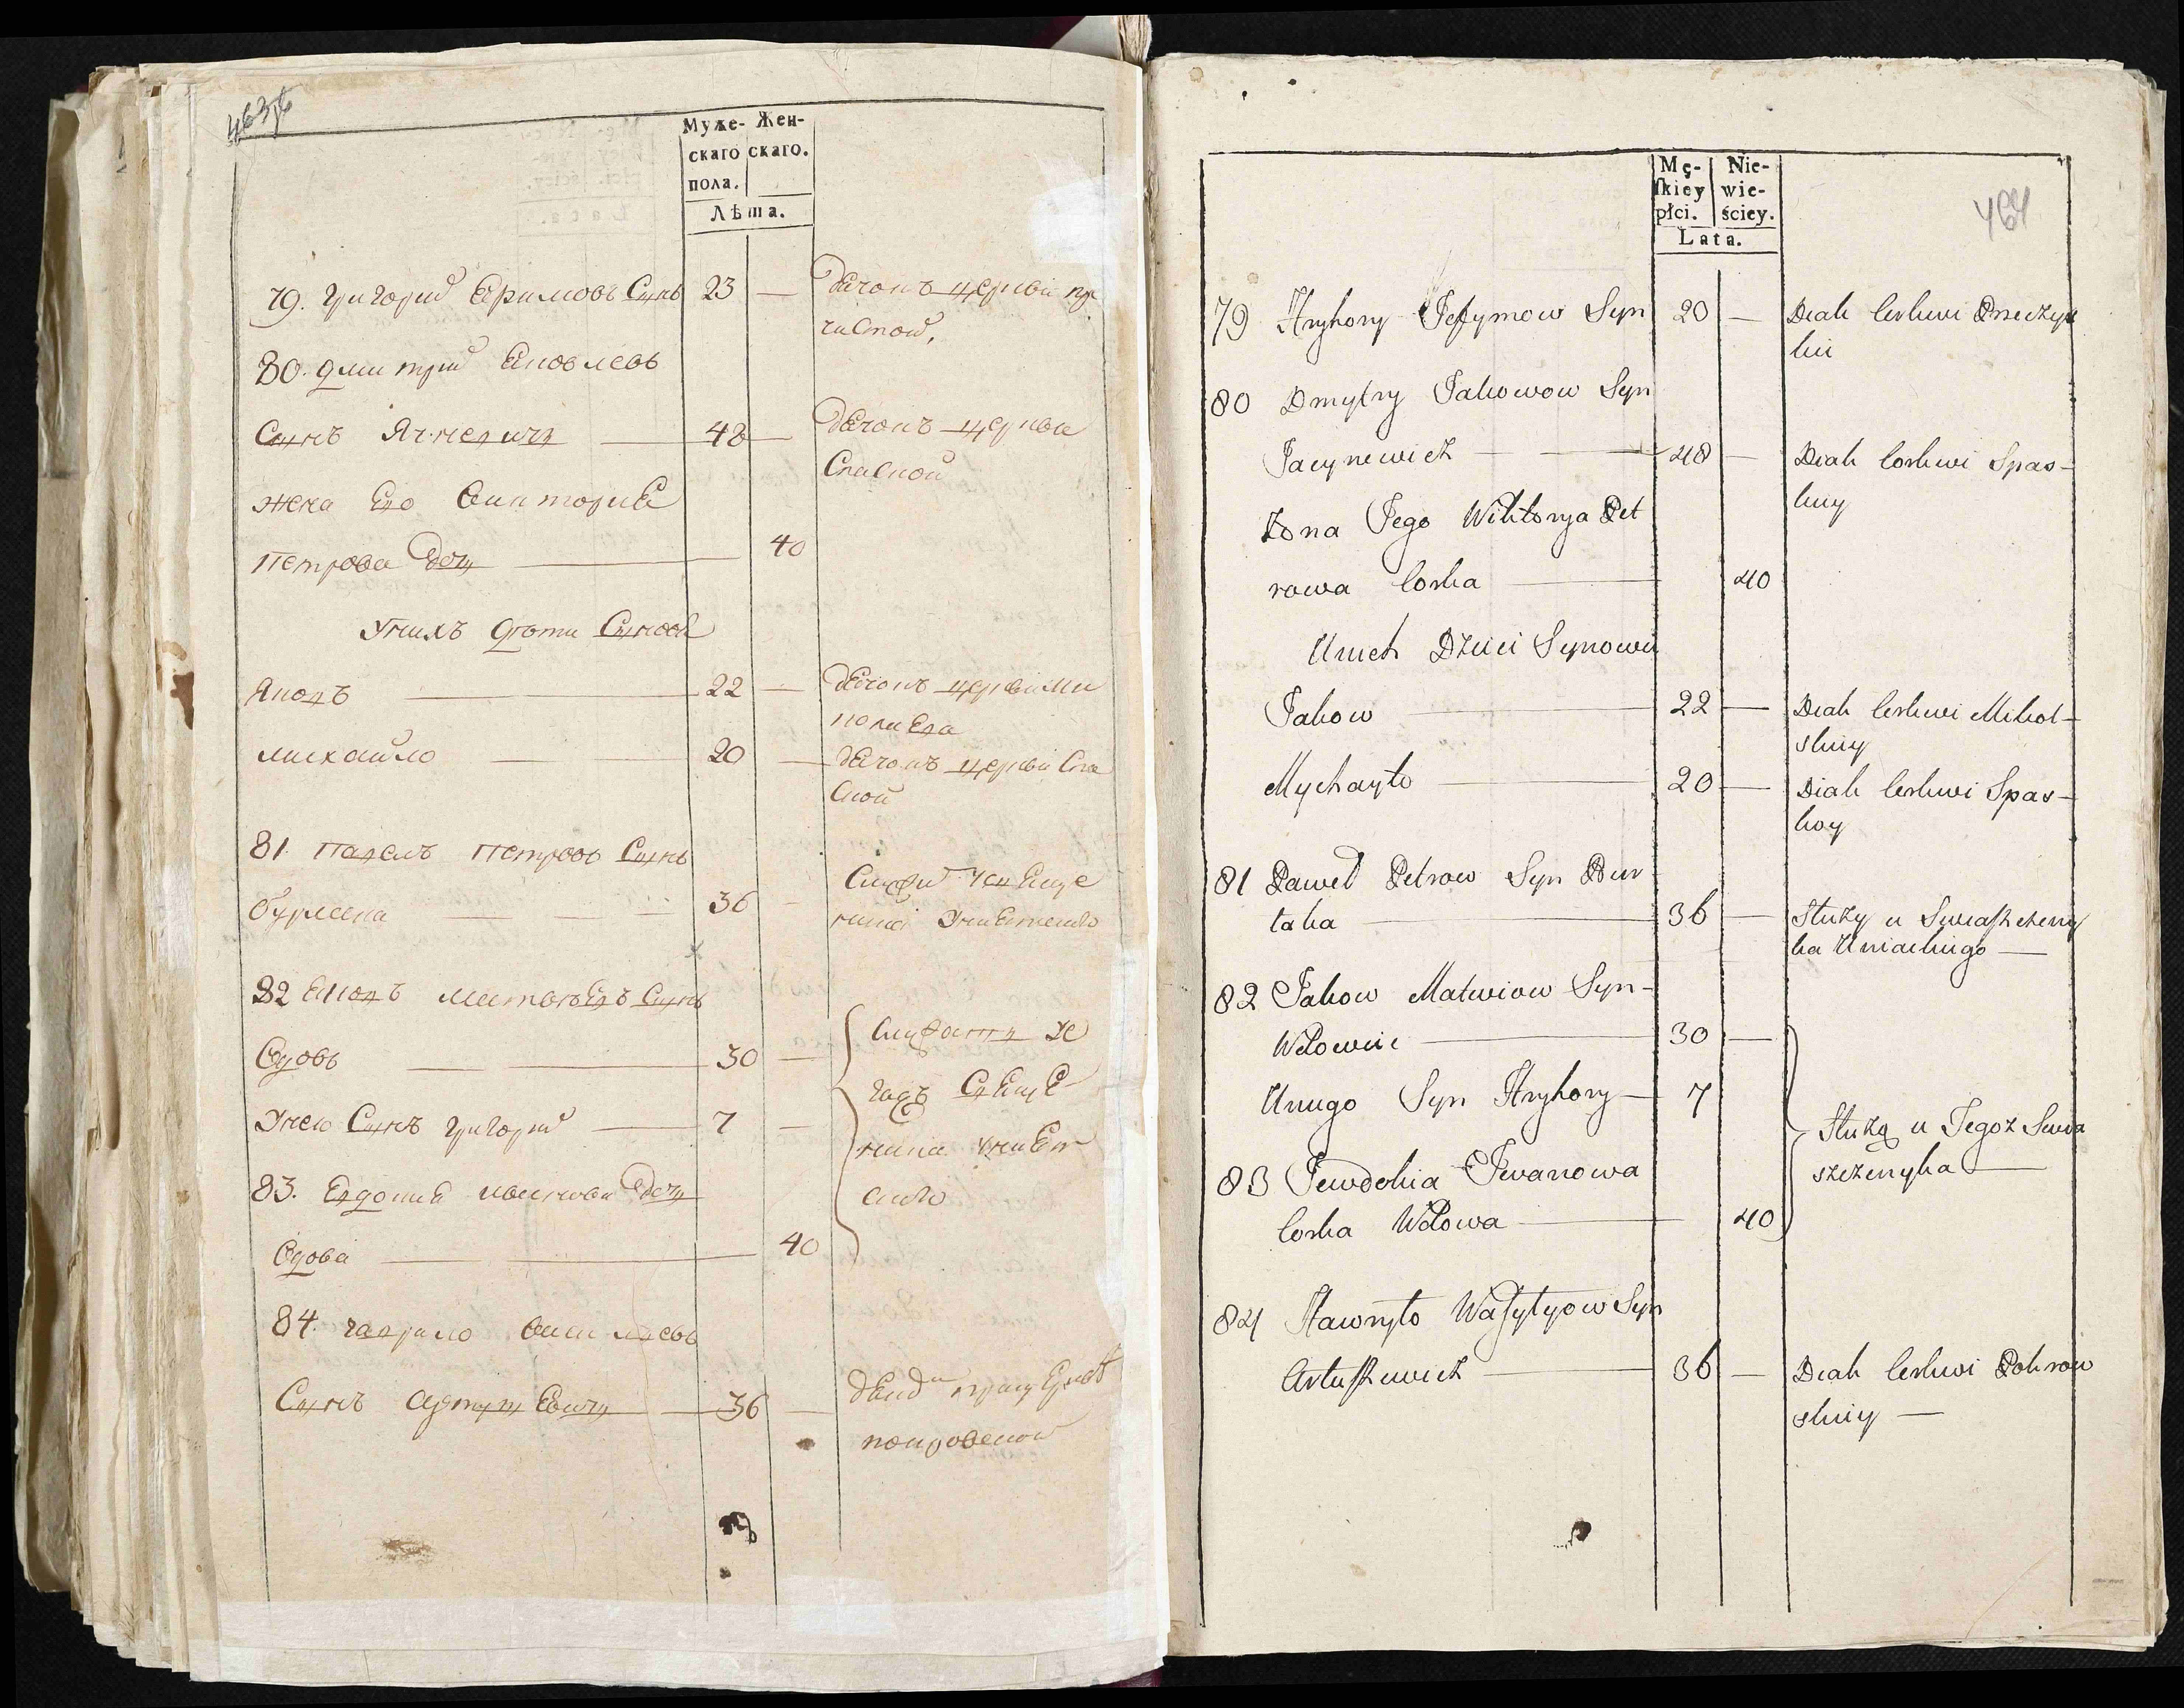 463
Муже- Жен-
скаго скаго.
пола.
Лѣта.
79. Григорий Ефимовъ Сынъ 23 — дячокъ церкви пре
чистой,
80. Дмитрий Яковлевъ
Сынъ Ячневичъ — 48 — дячокъ церкви
Спаской
жена Его Виктория
Петрова Дочь — 40
Унихъ дѣти Сыновя
Яковъ — 22 — дячокъ церкви Ми
колиева
михайло — 20 — дячокъ церкви Спа
ской
81. Павелъ Петровъ Сынъ
бурлака — 36 — Служи
уницкаго
82 Яковъ матвѣевъ Сынъ
Вдовъ — 30 — Служатъ
Унего Сынъ григорий — 7 —
83. Евдокия иванова дочь
Вдова — 40
84. гаврило василевъ
Сынъ Артушевичъ — 36 — дякъ церкви
покровской
464
Mę- Nie-
ſkiey wie-
płci. ściey.
Lata.
79 Hryhory Jefymow Syn 20 — Diak Cerkwi Przeczys
kii
80 Dmytry Jakowow Syn
Jacynewicz — 48 — Diak Cerkwi Spas-
kiiy
Żona Jego Wiktorya Pet
rowa Corka — 40
Unich Dzieci Synowie
Jakow — 22 — Diak Cerkwi Mikol-
skiiy
Mychayło — 20 — Diak Cerkwi Spas-
koy
81 Paweł Petrow Syn Bur
łaka — 36 — Służy u Swiaszczeny
ka Uniackiego —
82 Jakow Matwiow Syn-
Wdowiec — 30 —
Uniego Syn Hryhory — 7
Służą u Tegoż Swia
szczenyka —
83 Jewdokia Iwanowa
Corka Wdowa — 40
84 Hawryło Wasylyow Syn
Artuszewicz — 36 — Diak Cerkwi Pokrow
skiiy —